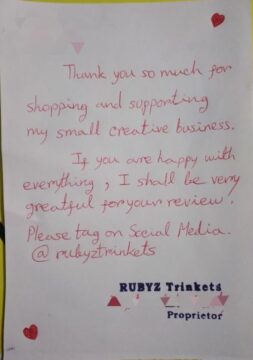 Thank you so much for
shopping and supporting
my small creative business.
If you are happy with
everything, I shall be very
greatful for your review.
Please tag on Social Media.
@rubyztrinkets
RUBYZ Trinkets
Proprietor